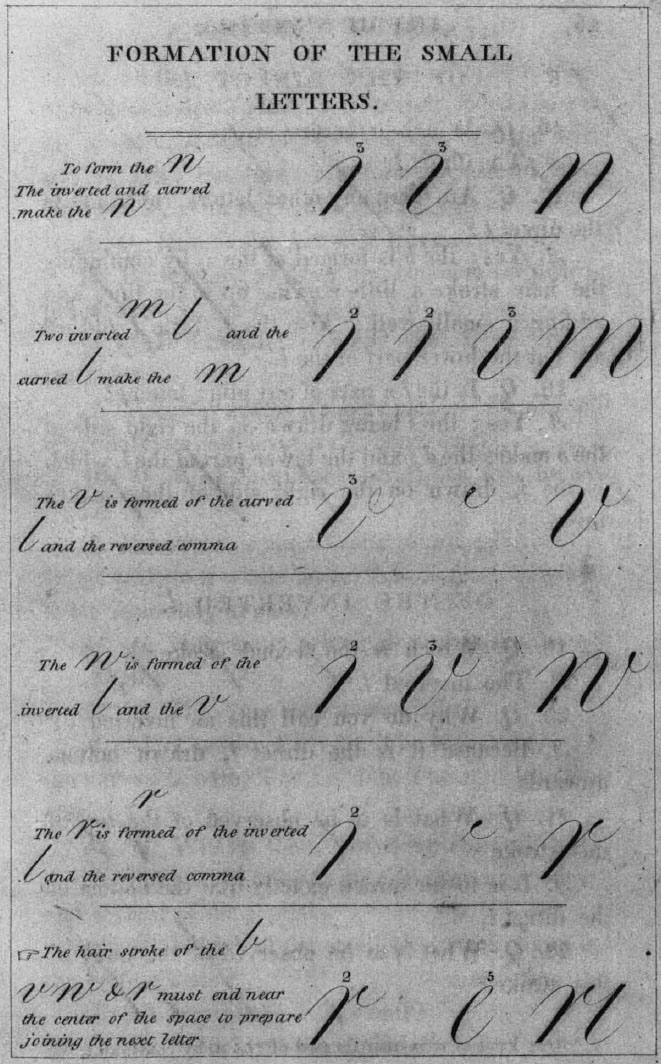 FORMATION OF THE SMALL
LETTERS.
To form the n 3 3
The inverted and curved
make the n l l n
m
Two inverted l and the 2 2 3
curved l make the m l l l m
The v is formed of the curved 3
l and the reversed comma v c v
The w is formed of the 2 3
inverted l and the v l v w
r
The r is formed of the inverted 2
l and the reversed comma l c r
☞ The hair stroke of the b
v w & r must end near 2 5
the center of the space to prepare r e n
joining the next letter